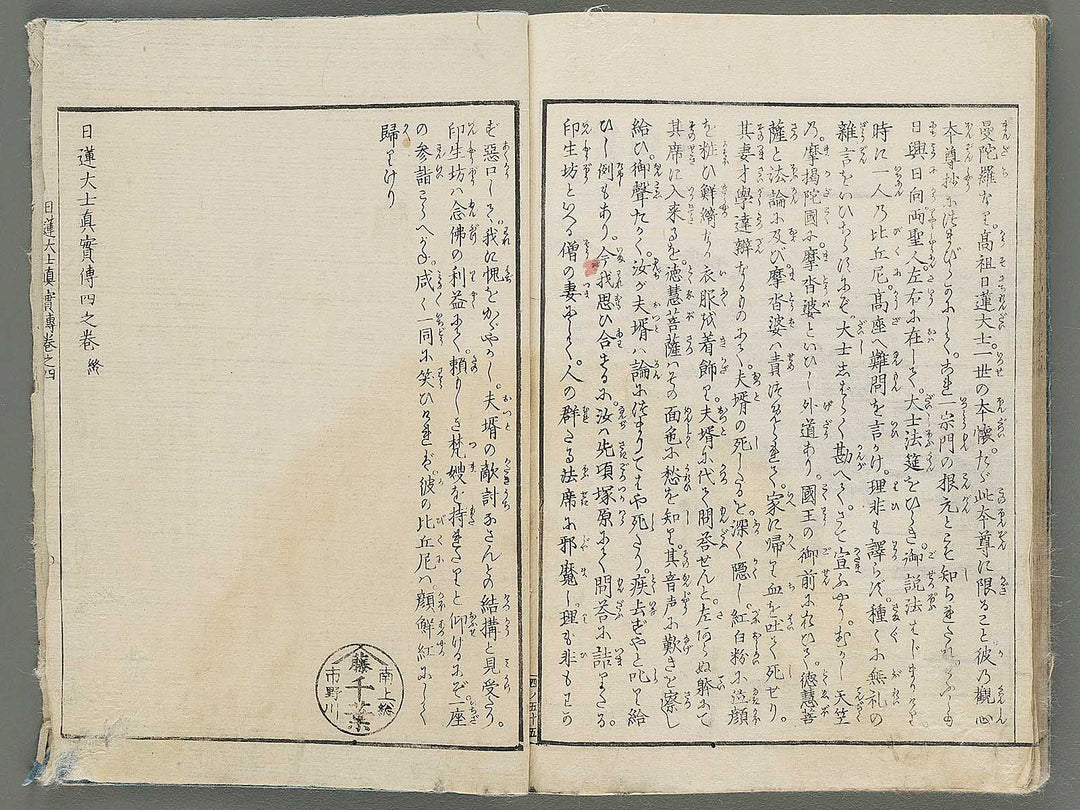 曼陀羅なり。高祖日蓮大士一世の本懐。たゞ此本尊に限ること彼乃觀心
本尊抄に
宗門の根元とこそ知られたれ。
日興日向両聖人左右に在して。大士法筵をひらき。御説法
時に一人乃比丘尼。高座へ難問を言かけ。理非も譯らず。種々に無礼の
雜言をいひ 大士 勘へ 宣ふやう。むかし天竺
乃。摩掲陀國に摩沓婆といひし外道あり。國王の御前に在ひて。徳慧菩
薩と法論に及び摩沓婆は責 家に帰り血を吐て死せり。
其妻才學達辯なるものにて。夫婿の死したるを深く隠し。紅白粉に 顔
を粧ひ鮮 衣服を着飾り。夫婿に代て問答せんと。左何らぬ躰にて
其席に入来るを。徳慧菩薩はその面色に愁を知り。其音声に歎きを察し
給ひ御聲たかく。汝が夫婿は論に まりてもや死たり。疾去ずやと叱り給
ひし例もあり。今我思ひ合するに。汝は先頃塚原にて問答に詰りたる。
印生坊といへる僧の妻にて。人の群たる法席に邪魔し。理も非もせの
ず惡口して。我に愧をかゞやかし。夫婿の敵討なさんとの結構と見受たり。
印生坊は念佛の利益にて。頼りしき梵嫂を持たりと仰けるにぞ一座
の参詣 咸く一同に笑ひければ。彼の比丘尼は顔鮮紅にして
歸りけり
日蓮大士真實傳四之巻 終
日蓮大士真實傳巻之四
四ノ五十五
南上総
藤
千葉
市野川